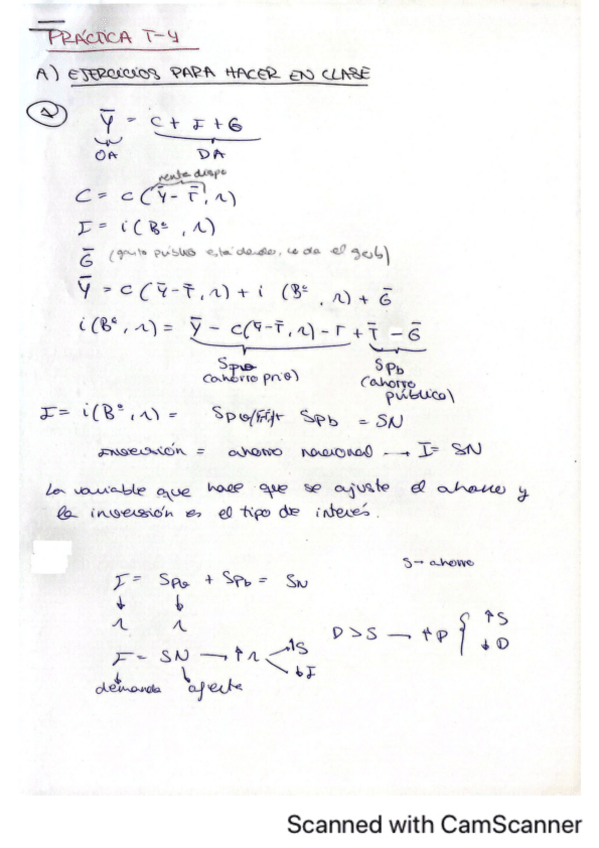 PRÁCTICA T-4
A) EJERCICIOS PARA HACER EN CLASE
Ȳ = C + I + G
OA DA
renta dispo
C = c(Ȳ-T̄, r)
I = i(Bᵉ, r)
Ḡ (gasto público está dado, lo da el gob)
Ȳ = c(Ȳ-T̄, r) + i (Bᵉ, r) + Ḡ
i(Bᵉ, r) = Ȳ - c(Ȳ-T̄, r) - T + T̄ - Ḡ
Spv Spb
(ahorro priv) (ahorro público)
I = i(Bᵉ, r) = Spv Spb = SN
Inversión = ahorro nacional → I = SN
La variable que hace que se ajuste el ahorro y
la inversión es el tipo de interés.
S → ahorro
I = Spv + Spb = SN
↓ ↓
r r
D > S → ↑P { ↑S ↓D
I = SN → ↑r ↑S ↓I
demanda oferta
Scanned with CamScanner